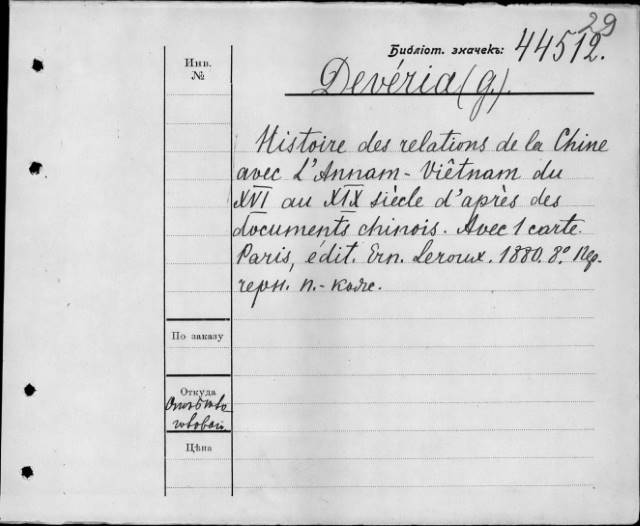 29
Библіот. значекъ: 44512.
Инв.
№
Devéria (G.).
Histoire des relations de la Chine
avec L'Annam - Viêtnam du
XVI au XIX siècle d'après des
documents chinois. Avec 1 carte.
Paris, édit. Ern. Leroux. 1880. 8º. Пер.
черн. п.-кож.
По заказу
Откуда
Цѣна